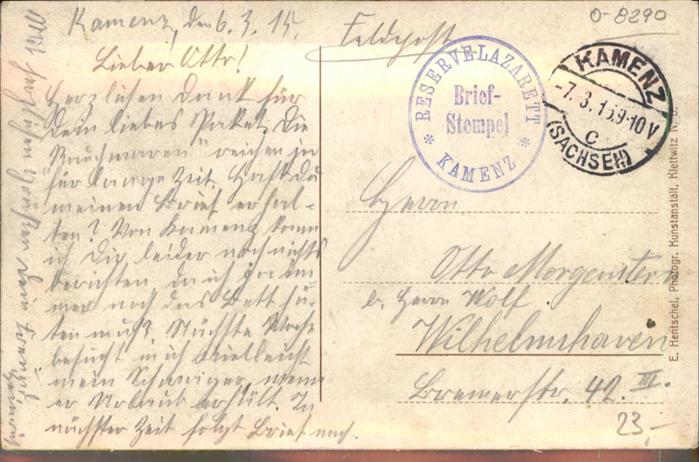 Kamenz, den 6.3.15.
Lieber Otto!
Herzlichen Dank für
Dein liebes Paket. Die
"Rauchwaren" reichen in
für lange Zeit. Hast Du
meinen Brief erhal-
ten? Von Kamenz kann
ich Dir leider noch nichts
berichten, da ich ja im-
mer noch das Bett hü-
ten muß. Nächste Woche
besucht mich vielleicht
mein Schwager, wenn
er Urlaub erhält. In
nächster Zeit folgt Brief nach.
Mit herzlichen Grüßen Dein Freund
Feldpost
RESERVE-LAZARETT
Brief-
Stempel
* KAMENZ *
KAMENZ
-7.3.15.9-10V
C
(SACHSEN)
O-8290
Herrn
Otto Morgenstern
b. Herrn Wolf.
Wilhelmshaven
Bremerstr. 42. III.
23,-
E. Hentschel, Photogr. Kunstanstalt, Klettwitz N.